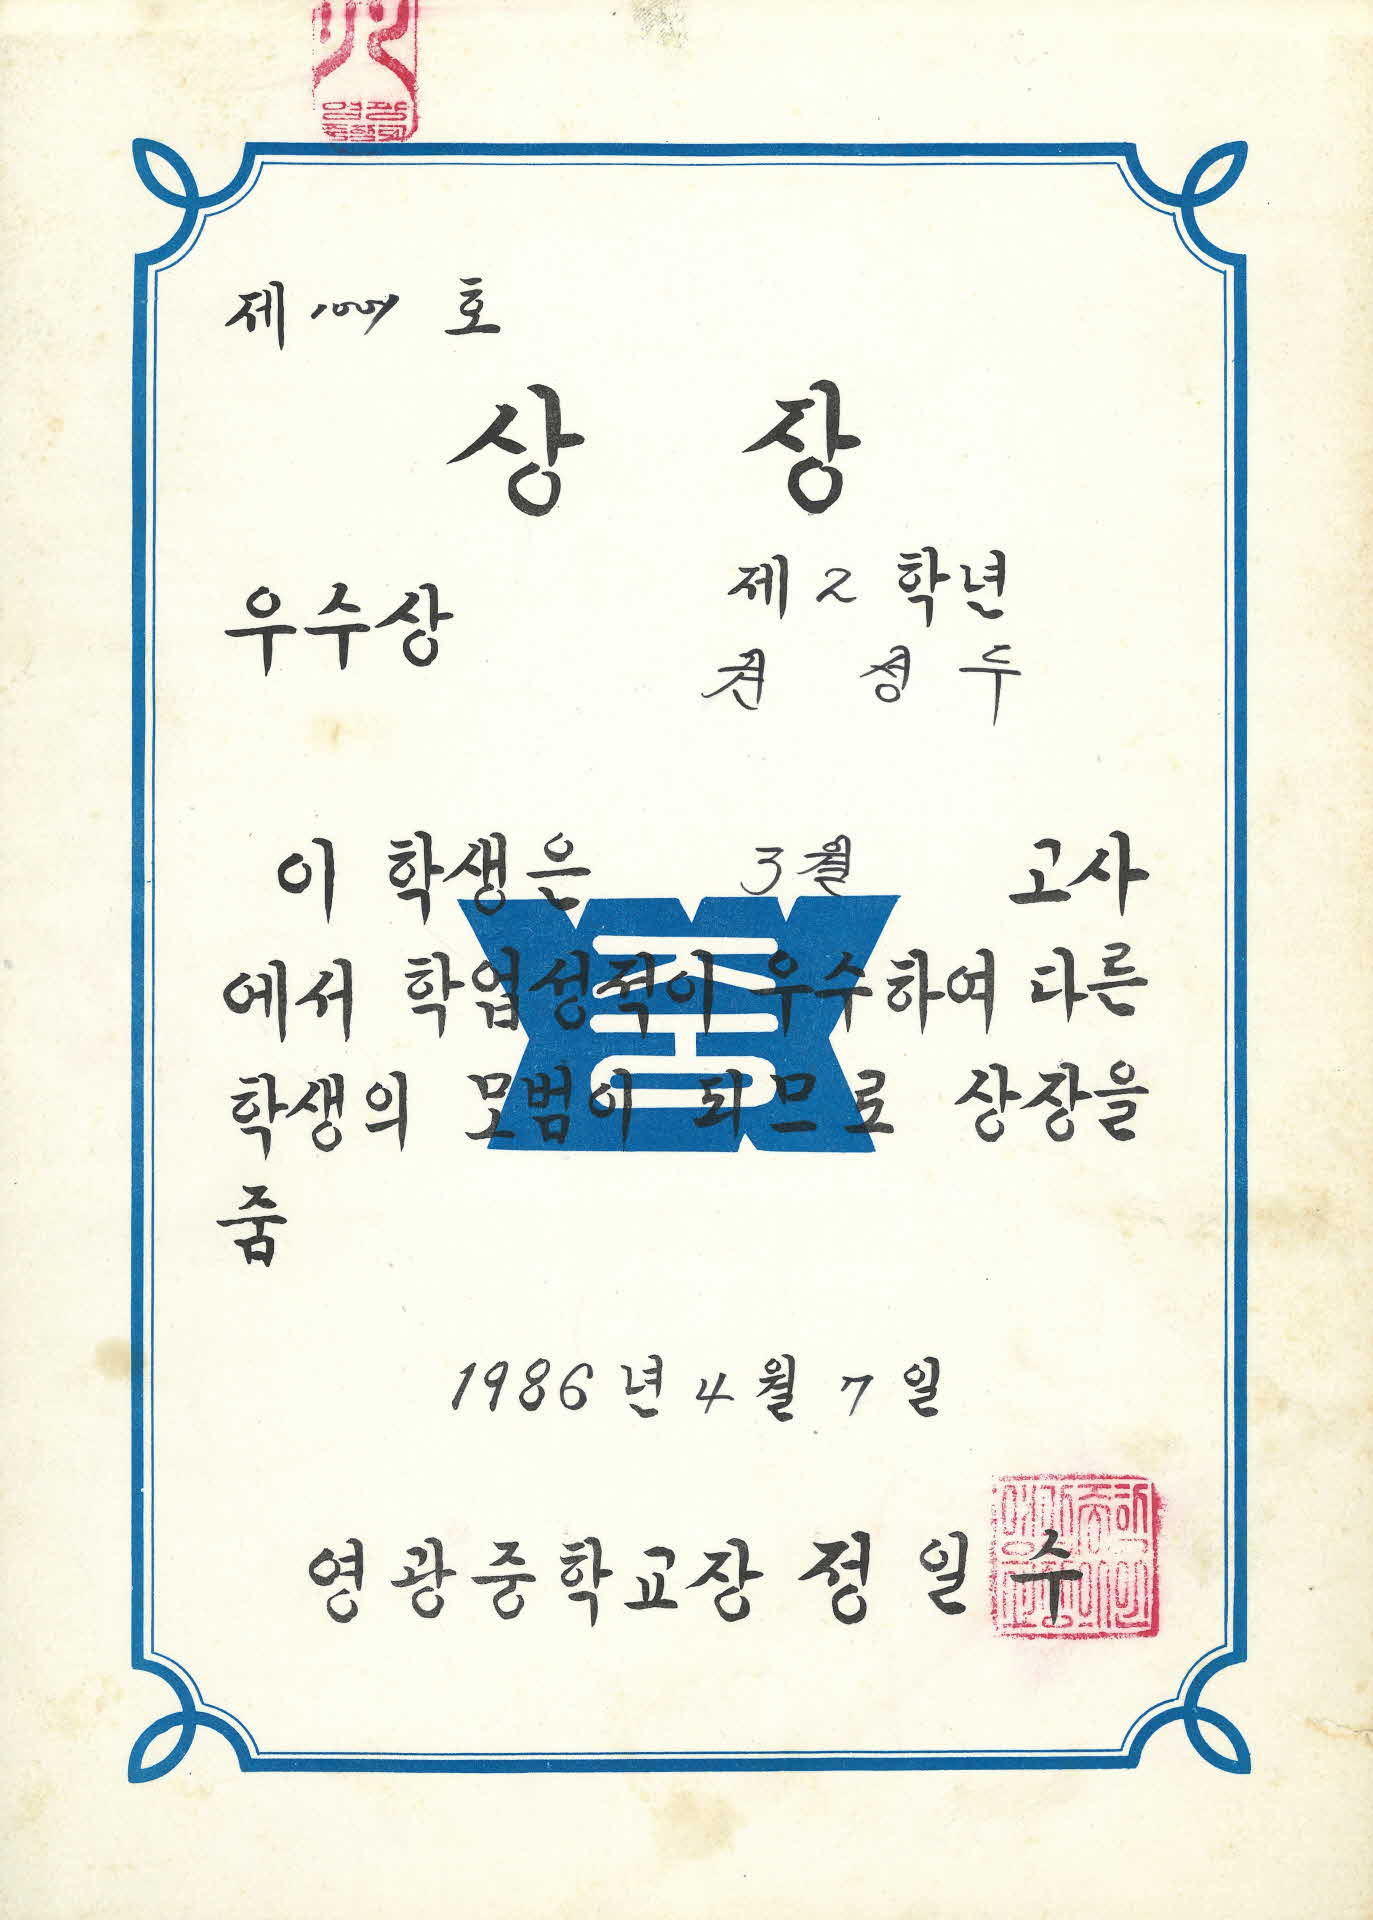 제 호
상 장
우수상
제 2 학년
권 성 두
이 학생은 3월 고사
에서 학업성적이 우수하여 다른
학생의 모범이 되므로 상장을
줌
1986 년 4 월 7 일
영광중학교장 정 일 수
중